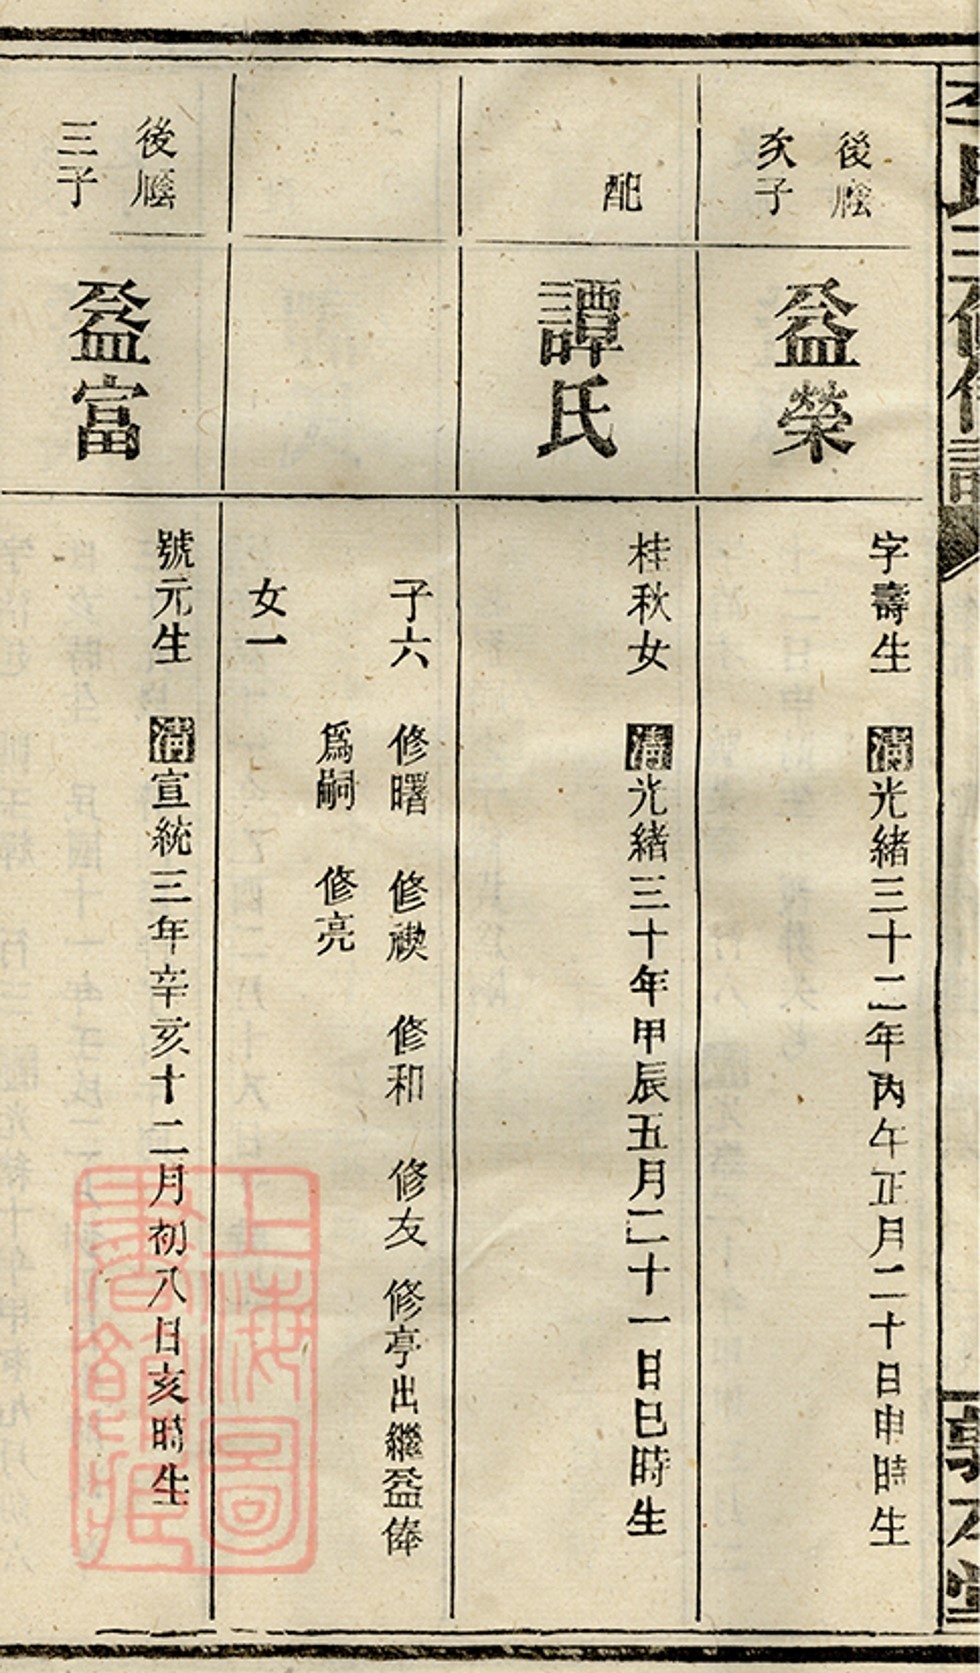 後廕
次子
益榮
字壽生 清光緒三十二年丙午正月二十日申時生
配
譚氏
桂秋女 清光緒三十年甲辰五月二十一日巳時生
子六 修曙 修禊 修和 修友 修亭出繼益俸
爲嗣 修亮
女一
後廕
三子
益富
號元生 清宣統三年辛亥十二月初八日亥時生
上海圖
書館藏